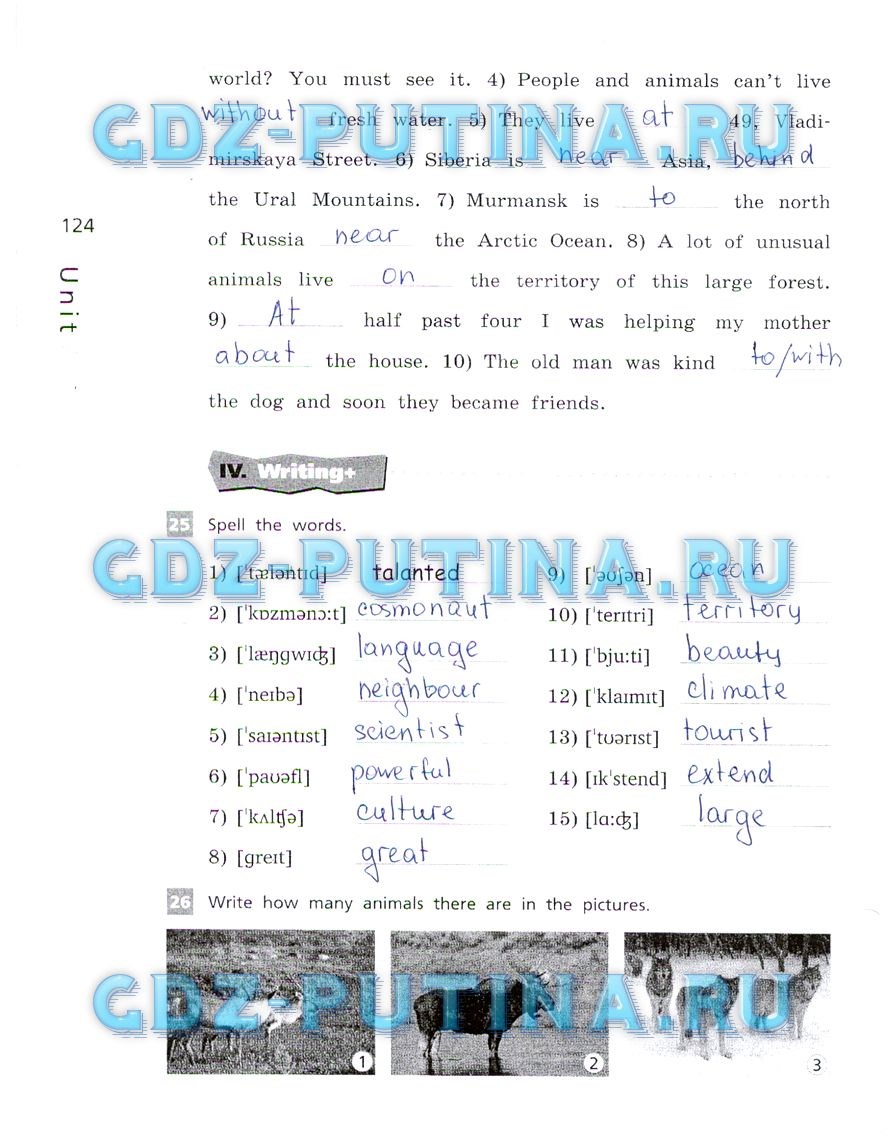 world? You must see it. 4) People and animals can't live
without fresh water. 5) They live at 49, Vladi-
GDZ-PUTINA.RU
mirskaya Street. 6) Siberia is near Asia, behind
the Ural Mountains. 7) Murmansk is to the north
124
of Russia near the Arctic Ocean. 8) A lot of unusual
Unit
animals live on the territory of this large forest.
9) At half past four I was helping my mother
about the house. 10) The old man was kind to/with
the dog and soon they became friends.
IV. Writing+
25 Spell the words.
GDZ-PUTINA.RU
1) [ˈtæləntɪd] talanted
2) [ˈkɒzmənɔ:t] cosmonaut
3) [ˈlæŋgwɪʤ] language
4) [ˈneɪbə] neighbour
5) [ˈsaɪəntɪst] scientist
6) [ˈpaʊəfl] powerful
7) [ˈkʌlʧə] culture
8) [greɪt] great
9) [ˈəʊʃən] ocean
10) [ˈterɪtri] territory
11) [ˈbju:ti] beauty
12) [ˈklaɪmɪt] climate
13) [ˈtʊərɪst] tourist
14) [ɪkˈstend] extend
15) [lɑ:ʤ] large
26 Write how many animals there are in the pictures.
GDZ-PUTINA.RU
1 2 3